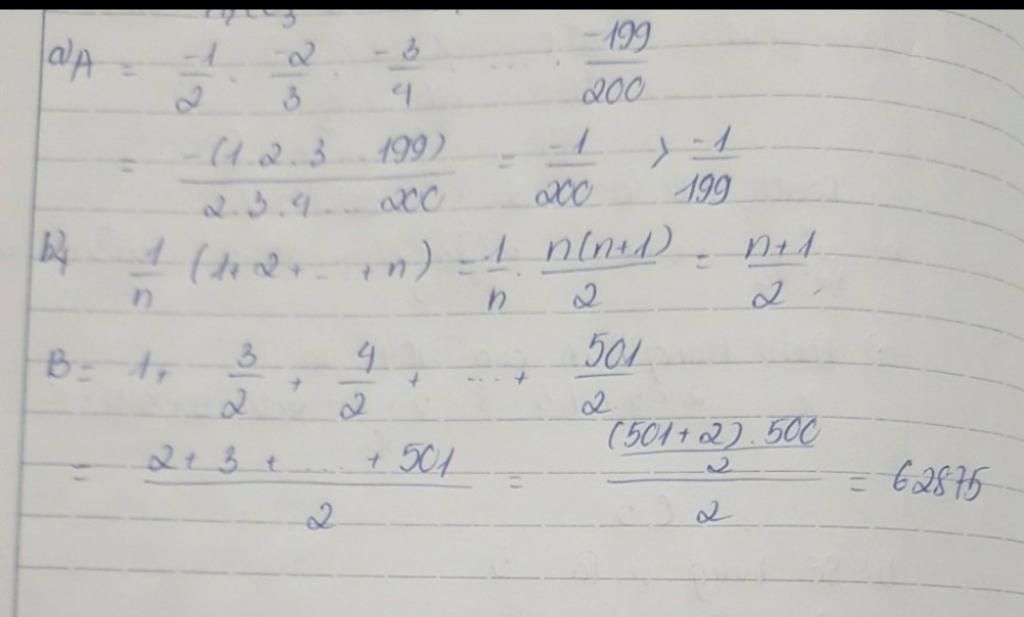 a) A = -1/2 . -2/3 . -3/4 . .... . -199/200
= -(1.2.3...199)/2.3.4...200 = -1/200 > -1/199
b) 1/n (1+2+...+n) = 1/n . n(n+1)/2 = n+1/2.
B = 1 + 3/2 + 4/2 + ... + 501/2
= 2+3+...+501/2 = (501+2).500/2/2 = 62875